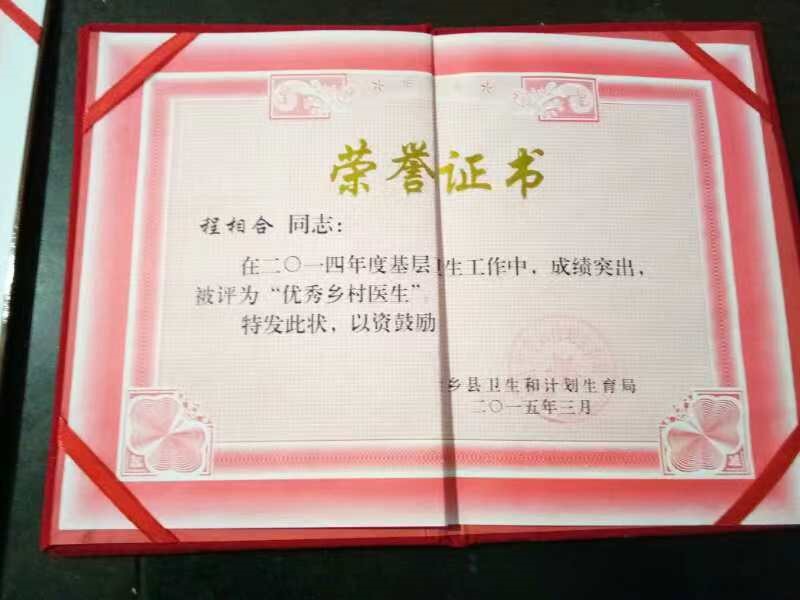 荣誉证书
程相合 同志：
在二〇一四年度基层卫生工作中，成绩突出，
被评为“优秀乡村医生”
特发此状，以资鼓励
乡县卫生和计划生育局
二〇一五年三月